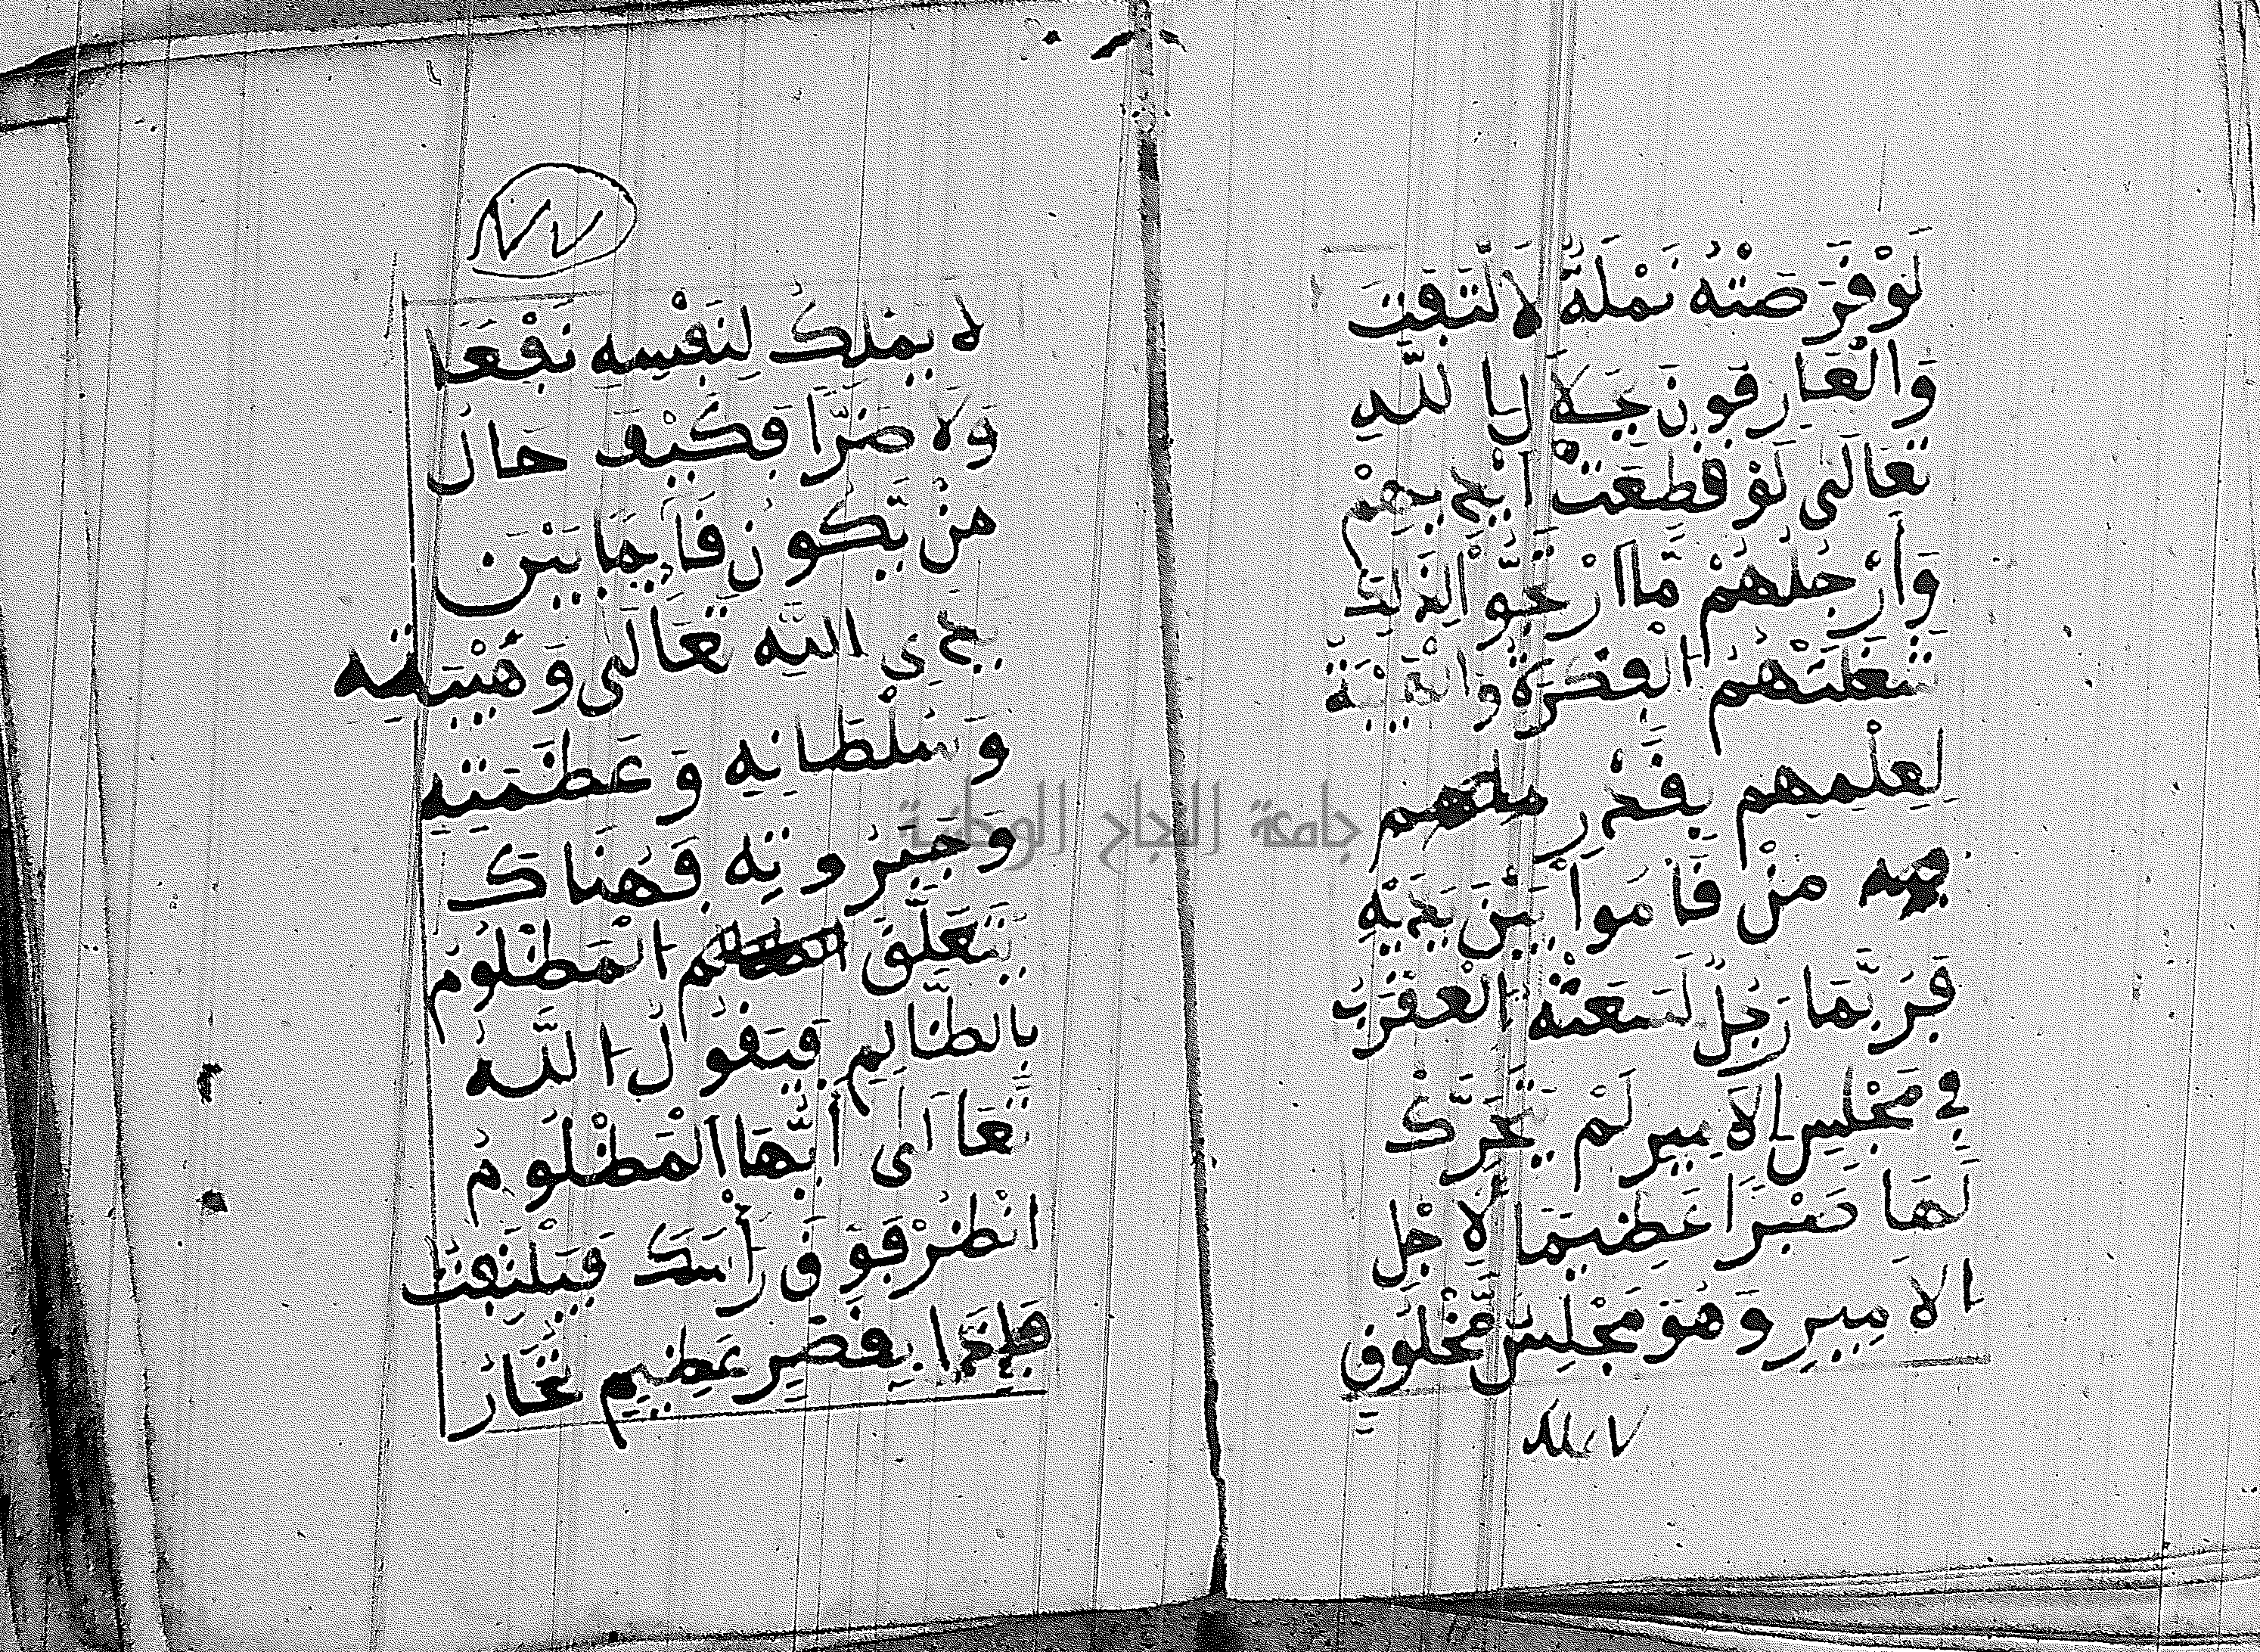 لَوْ قَرَصَتْهُ نَمْلَةٌ لَالْتَفَتَ
وَالْعَارِفُونَ بِجَلَالِ اللَّهِ
تَعَالَى لَوْ قُطِعَتْ أَيْدِيهِمْ
وَأَرْجُلُهُمْ مَّا انْزَعَجُوا لِذَلِكَ
شَغَلَتْهُمُ الْفِكْرَةُ وَالْهَيْبَةُ
لِعِلْمِهِم بِقَدْرِ
مَنْ قَامُوا بَيْنَ يَدَيْهِ
فَرُبَّمَا رَجُلٌ لَسَعَتْهُ الْعَقْرَبُ
فِي مَجْلِسِ الْأَمِيرِ لَمْ يَتَحَرَّكْ
لَهَا صَبْرًا عَظِيمًا لِأَجْلِ
الْأَمِيرِ وَهُوَ مَجْلِسُ مَّخْلُوقٍ
لا يملك
٧٧
لَا يَمْلِكُ لِنَفْسِهِ نَفْعًا
وَلَا ضَرًّا فَكَيْفَ حَالُ
مَنْ يَّكُونُ قَائِمًا بَيْنَ
يَدَيِ اللَّهِ تَعَالَى وَهَيْبَتِهِ
وَسُلْطَانِهِ وَعَظَمَتِهِ
وَجَبَرُوتِهِ فَهُنَاكَ
يَتَعَلَّقُ الْمَظْلُومُ
بِالظَّالِمِ فَيَقُولُ اللَّهُ
تَعَالَى أَيُّهَا الْمَظْلُومُ
انْظُرْ فَوْقَ رَأْسِكَ فَيَلْتَفِتُ
فَإِذَا بِقَصْرٍ عَظِيمٍ تَحَارُ
جامعة النجاح الوطنية